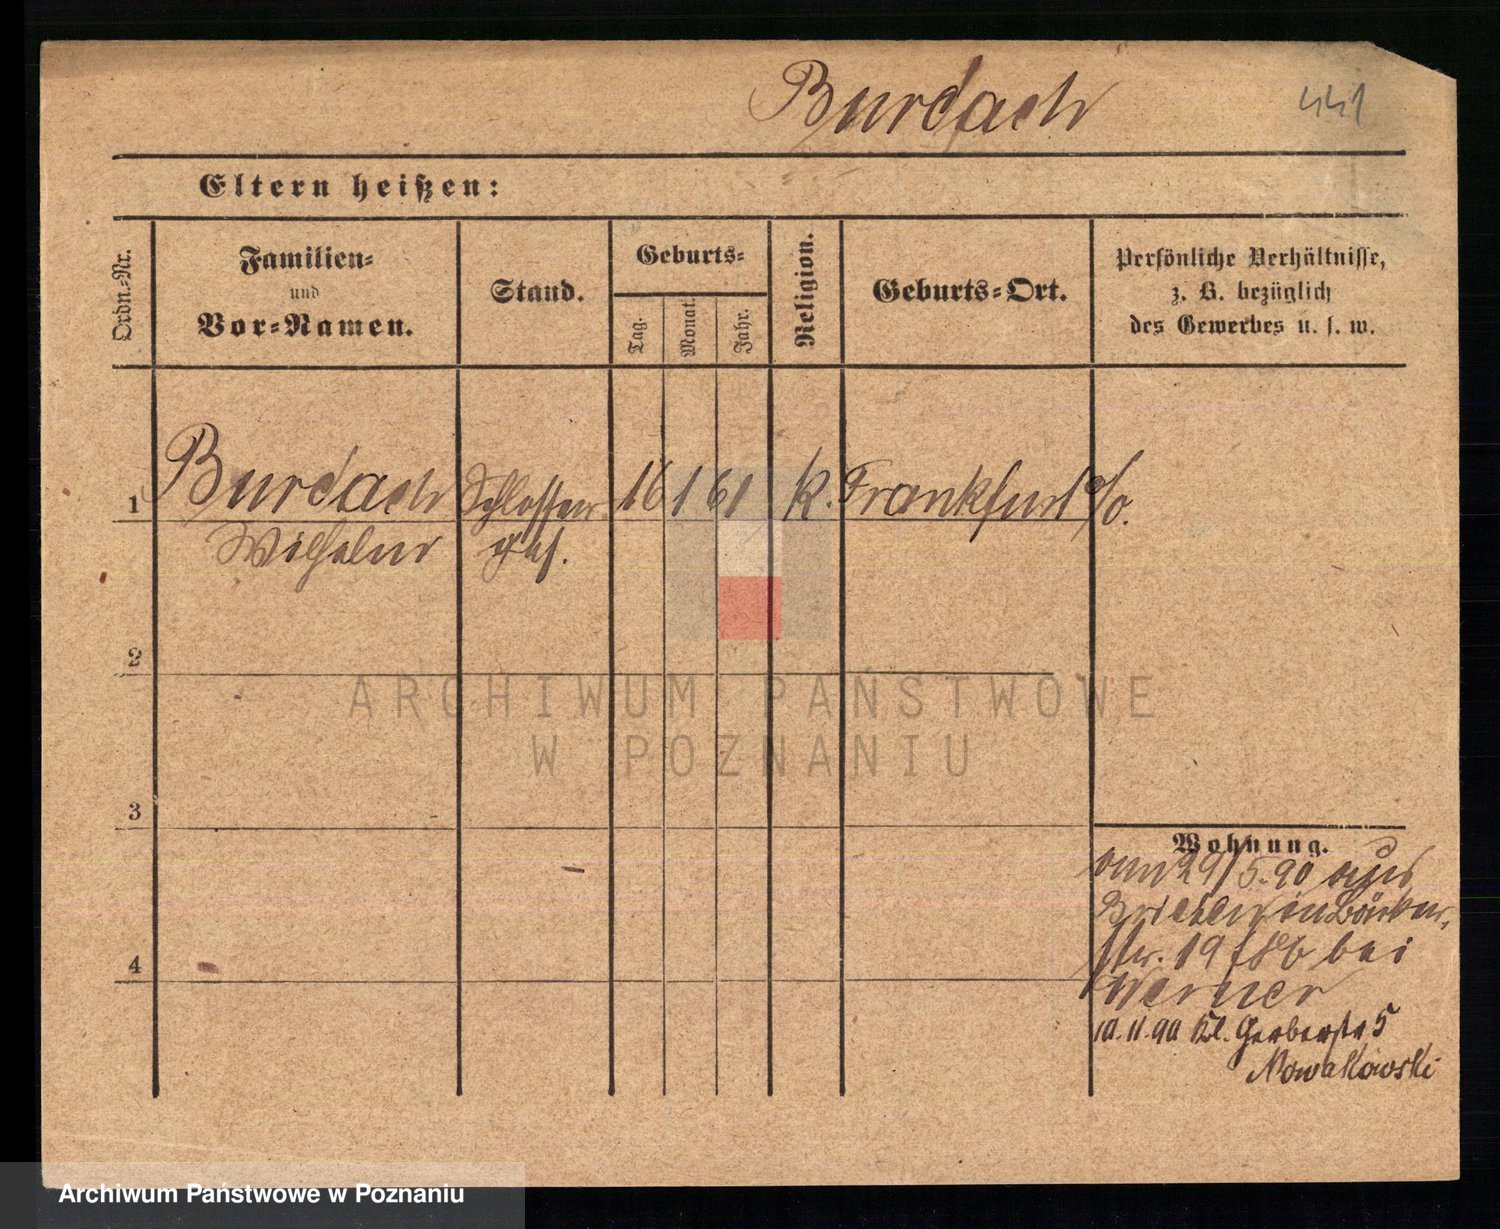 Burdach
441
Eltern heißen:
Ordn.-Nr.
Familien-
und
Vor-Namen.
Stand.
Geburts-
Tag.
Monat.
Jahr.
Religion.
Geburts-Ort.
Persönliche Verhältnisse,
z. B. bezüglich
des Gewerbes u. s. w.
1
Burdach Schlosser 16 1 61 k. Frankfurt a/o.
Wilhelm ges.
2
3
4
Wohnung.
am 29/5.90 aus
in Bäcker-
str. 19 bei
Werner
10.11.90 Kl. Gerberstr 5
Nowakowski
ARCHIWUM PAŃSTWOWE
W POZNANIU
Archiwum Państwowe w Poznaniu